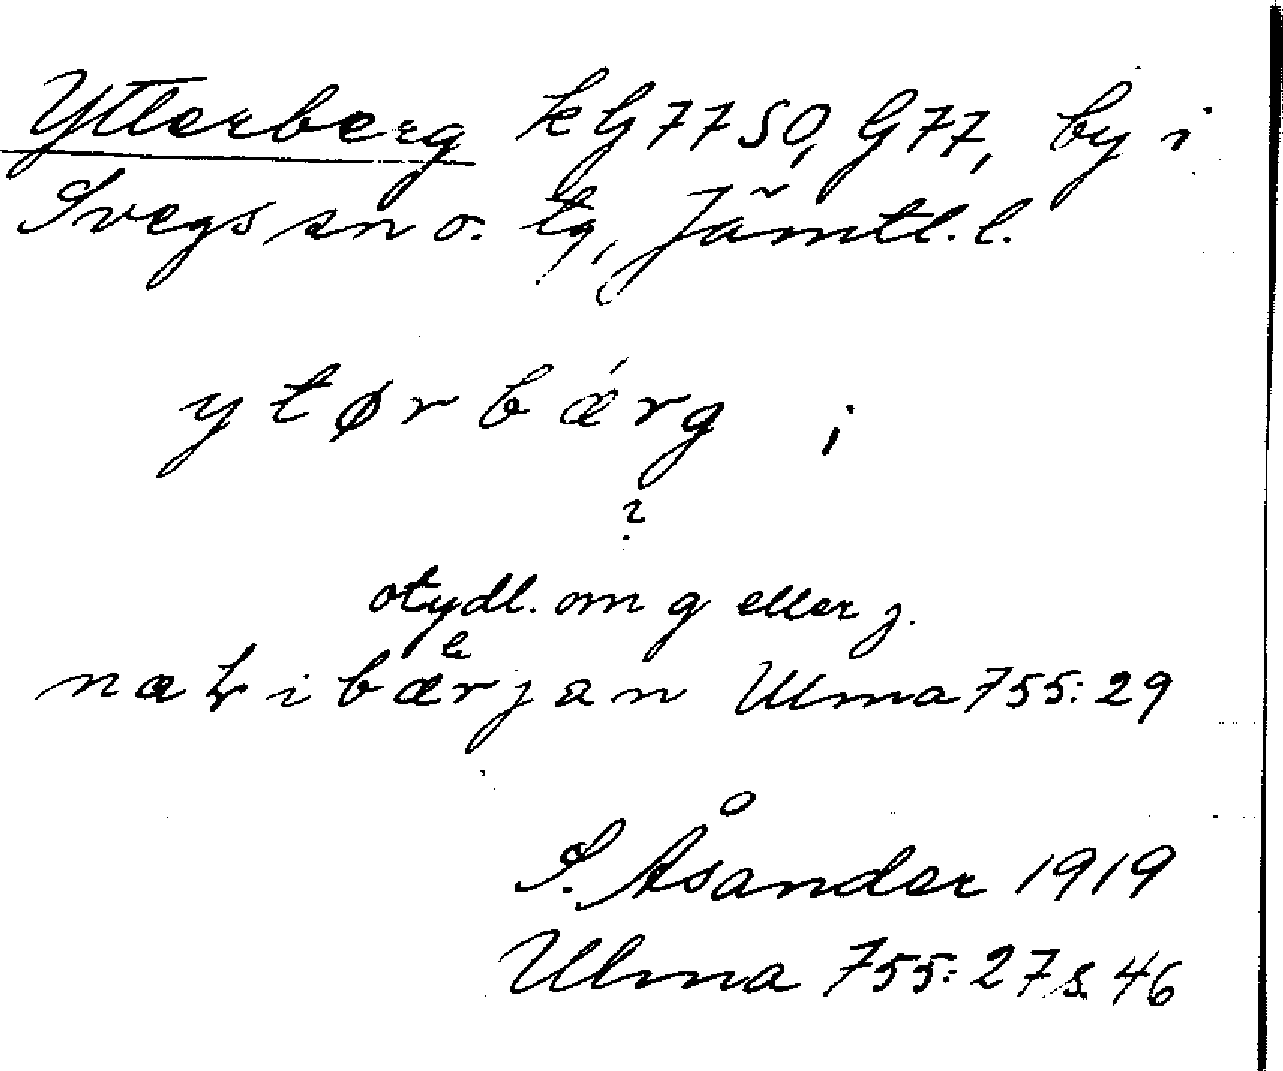 Ytterberg kG77SO, G77, by i
Svegs sn o. tg, Jämtl. l.
ytørbǽrg i
?
otydl. om g eller j.
e
i bærjan Ulma 755:29
S. Åsander 1919
Ulma 755:27 s. 46